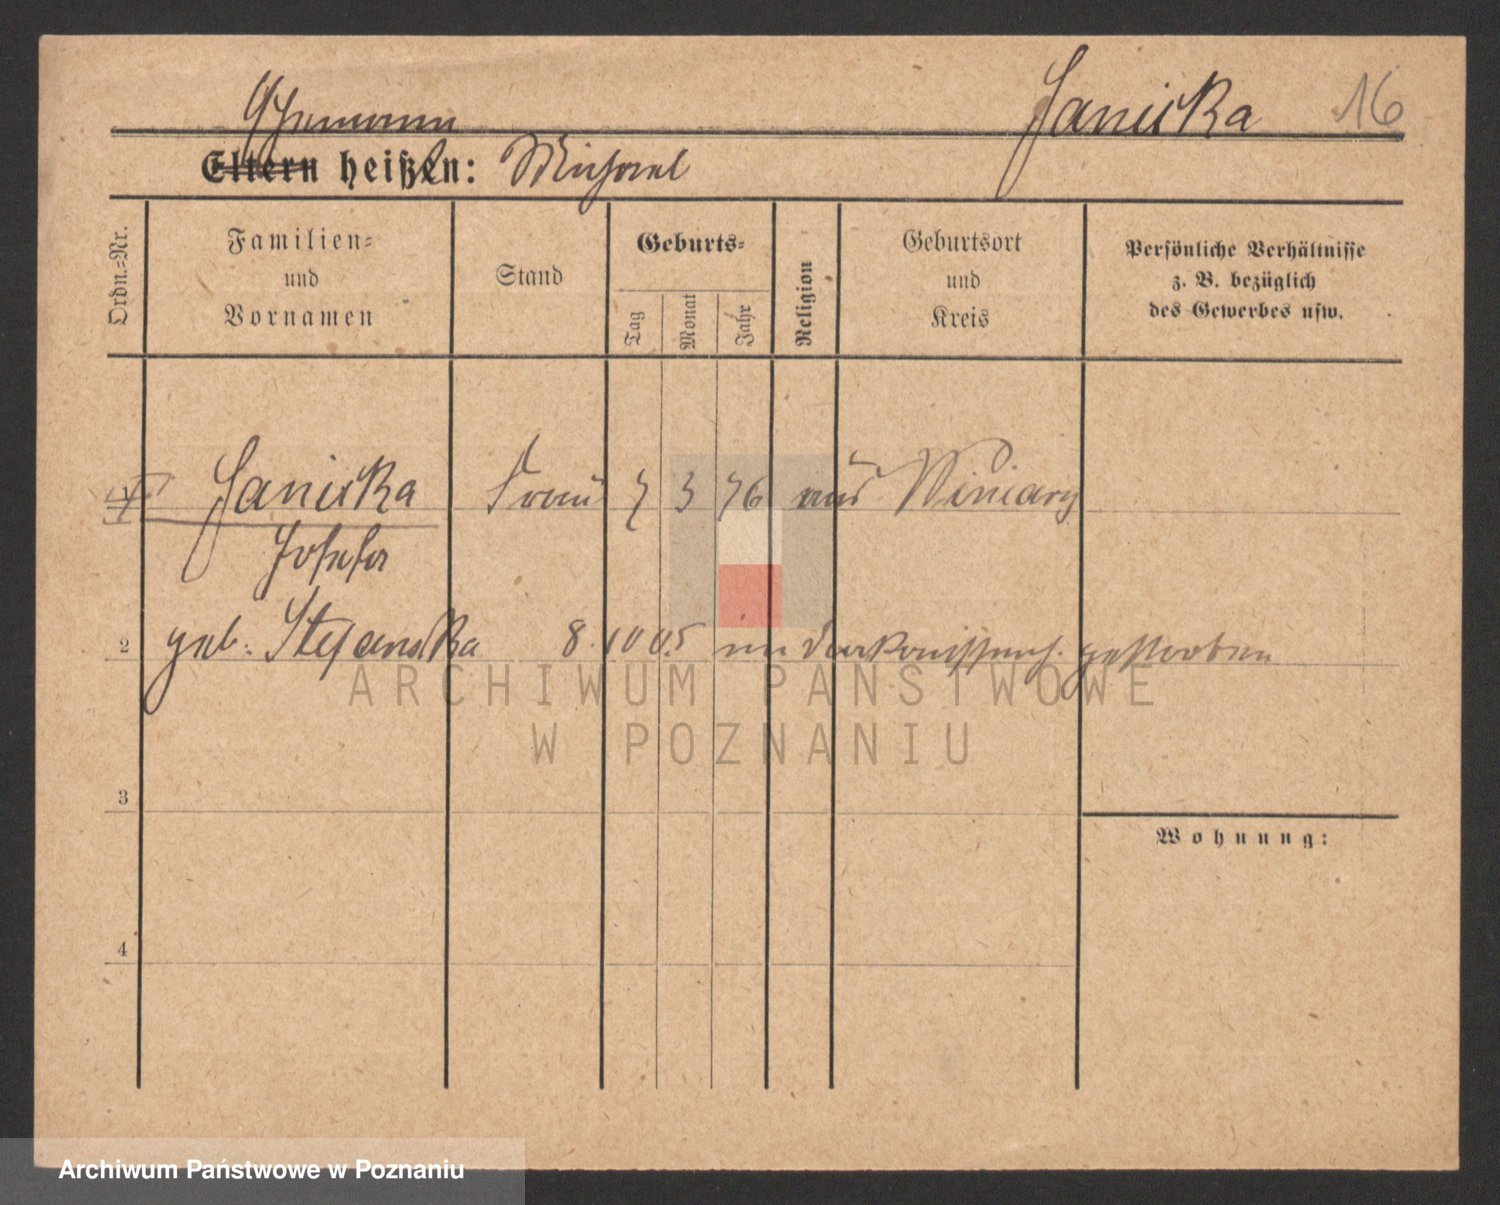 Janicka 16
Ehemann
Eltern heißen: Michael
Ordn.-Nr.
Familien-
und
Vornamen
Stand
Geburts-
Tag
Monat
Jahr
Religion
Geburtsort
und
Kreis
Persönliche Verhältnisse
z. B. bezüglich
des Gewerbes usw.
1 Janicka Frau 7 3 76 aus Winiary
Josefa
2 geb. Stefanska 8. 10 05 im Diakonissenh. gestorben
ARCHIWUM PAŃSTWOWE
W POZNANIU
3
Wohnung:
4
Archiwum Państwowe w Poznaniu